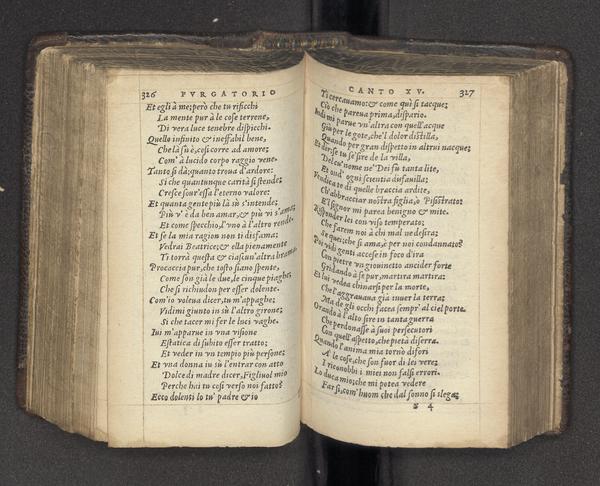 326 PVRGATORIO
Et egli à me; però che tu rificchi
La mente pur à le cose terrene,
Di vera luce tenebre dispicchi.
Quello infinito & ineffabil bene,
Che là sù è, cosi corre ad amore;
Com' à lucido corpo raggio vene.
Tanto si dà; quanto troua d'ardore:
Si che quantunque carità si stende;
Cresce sour'essa l'eterno valore:
Et quanta gente più là sù s'intende;
Più v'è da ben amar, & più vi s'ama;
Et come specchio, l'vno à l'altro rende.
Et se la mia ragion non ti disfama;
Vedrai Beatrice; & ella pienamente
Ti torrà questa & ciascun'altra brama.
Procaccia pur, che tosto siano spente,
Come son già le due, le cinque piaghe;
Che si richiudon per esser dolente.
Com'io voleua dicer, tu m'appaghe;
Vidimi giunto in sù l'altro girone;
Si che tacer mi fer le luci vaghe.
Iui m'apparue in vna visione
Estatica di subito esser tratto;
Et veder in vn tempio più persone;
Et vna donna in sù l'entrar con atto
Dolce di madre dicer, Figliuol mio
Perche hai tu cosi verso noi fatto?
Ecco dolenti lo tu' padre & io
CANTO XV. 327
Ti cercauamo: & come quì si tacque;
Ciò che pareua prima, dispario.
Indi mi parue vn'altra con quell'acque
Giù per le gote, che'l dolor distilla,
Quando per gran dispetto in altrui nacque;
Et dir, Se tu se' sire de la villa,
Del cu' nome ne' Dei fù tanta lite,
Et ond' ogni scientia disfauilla;
Vendica te di quelle braccia ardite,
Ch'abbracciar nostra figlia, ò Pisistrato:
E'l signor mi parea benigno & mite
Risponder lei con viso temperato;
Che farem noi à chi mal ne desira;
Se quei; che si ama, è per noi condannato?
Poi vidi genti accese in foco d'ira
Con pietre vn giouinetto ancider forte
Gridando à se pur, martira martira:
Et lui vedea chinarsi per la morte,
Che l'aggrauaua già inuer la terra;
Ma de gli occhi facea sempr' al ciel porte.
Orando à l'alto sire in tanta guerra
Che perdonasse à suoi persecutori
Con quell'aspetto, che pietà diserra.
Quando l'anima mia tornò difori
A le cose, che son fuor di lei vere;
I riconobbi i miei non falsi errori.
Lo duca mio; che mi potea vedere
Far si, com'huom che dal sonno si slega;
S 4